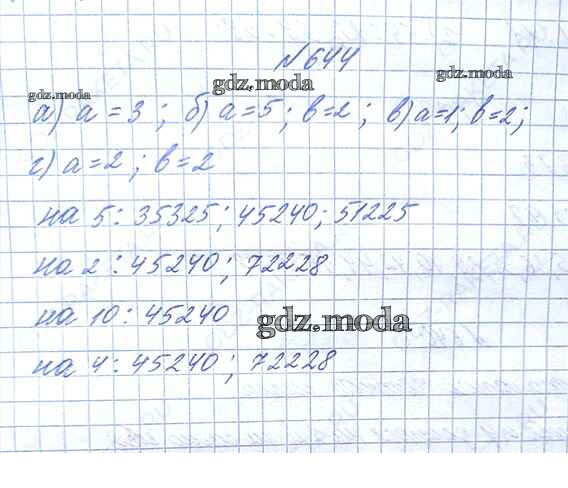 №644
gdz.moda
gdz.moda
gdz.moda
а) а = 3 ; б) а = 5 ; в = 2 ; в) а = 1 ; в = 2 ;
г) а = 2 ; в = 2
на 5 : 35325 ; 45240 ; 51225
на 2 : 45240 ; 72228
на 10 : 45240
gdz.moda
на 4 : 45240 ; 72228